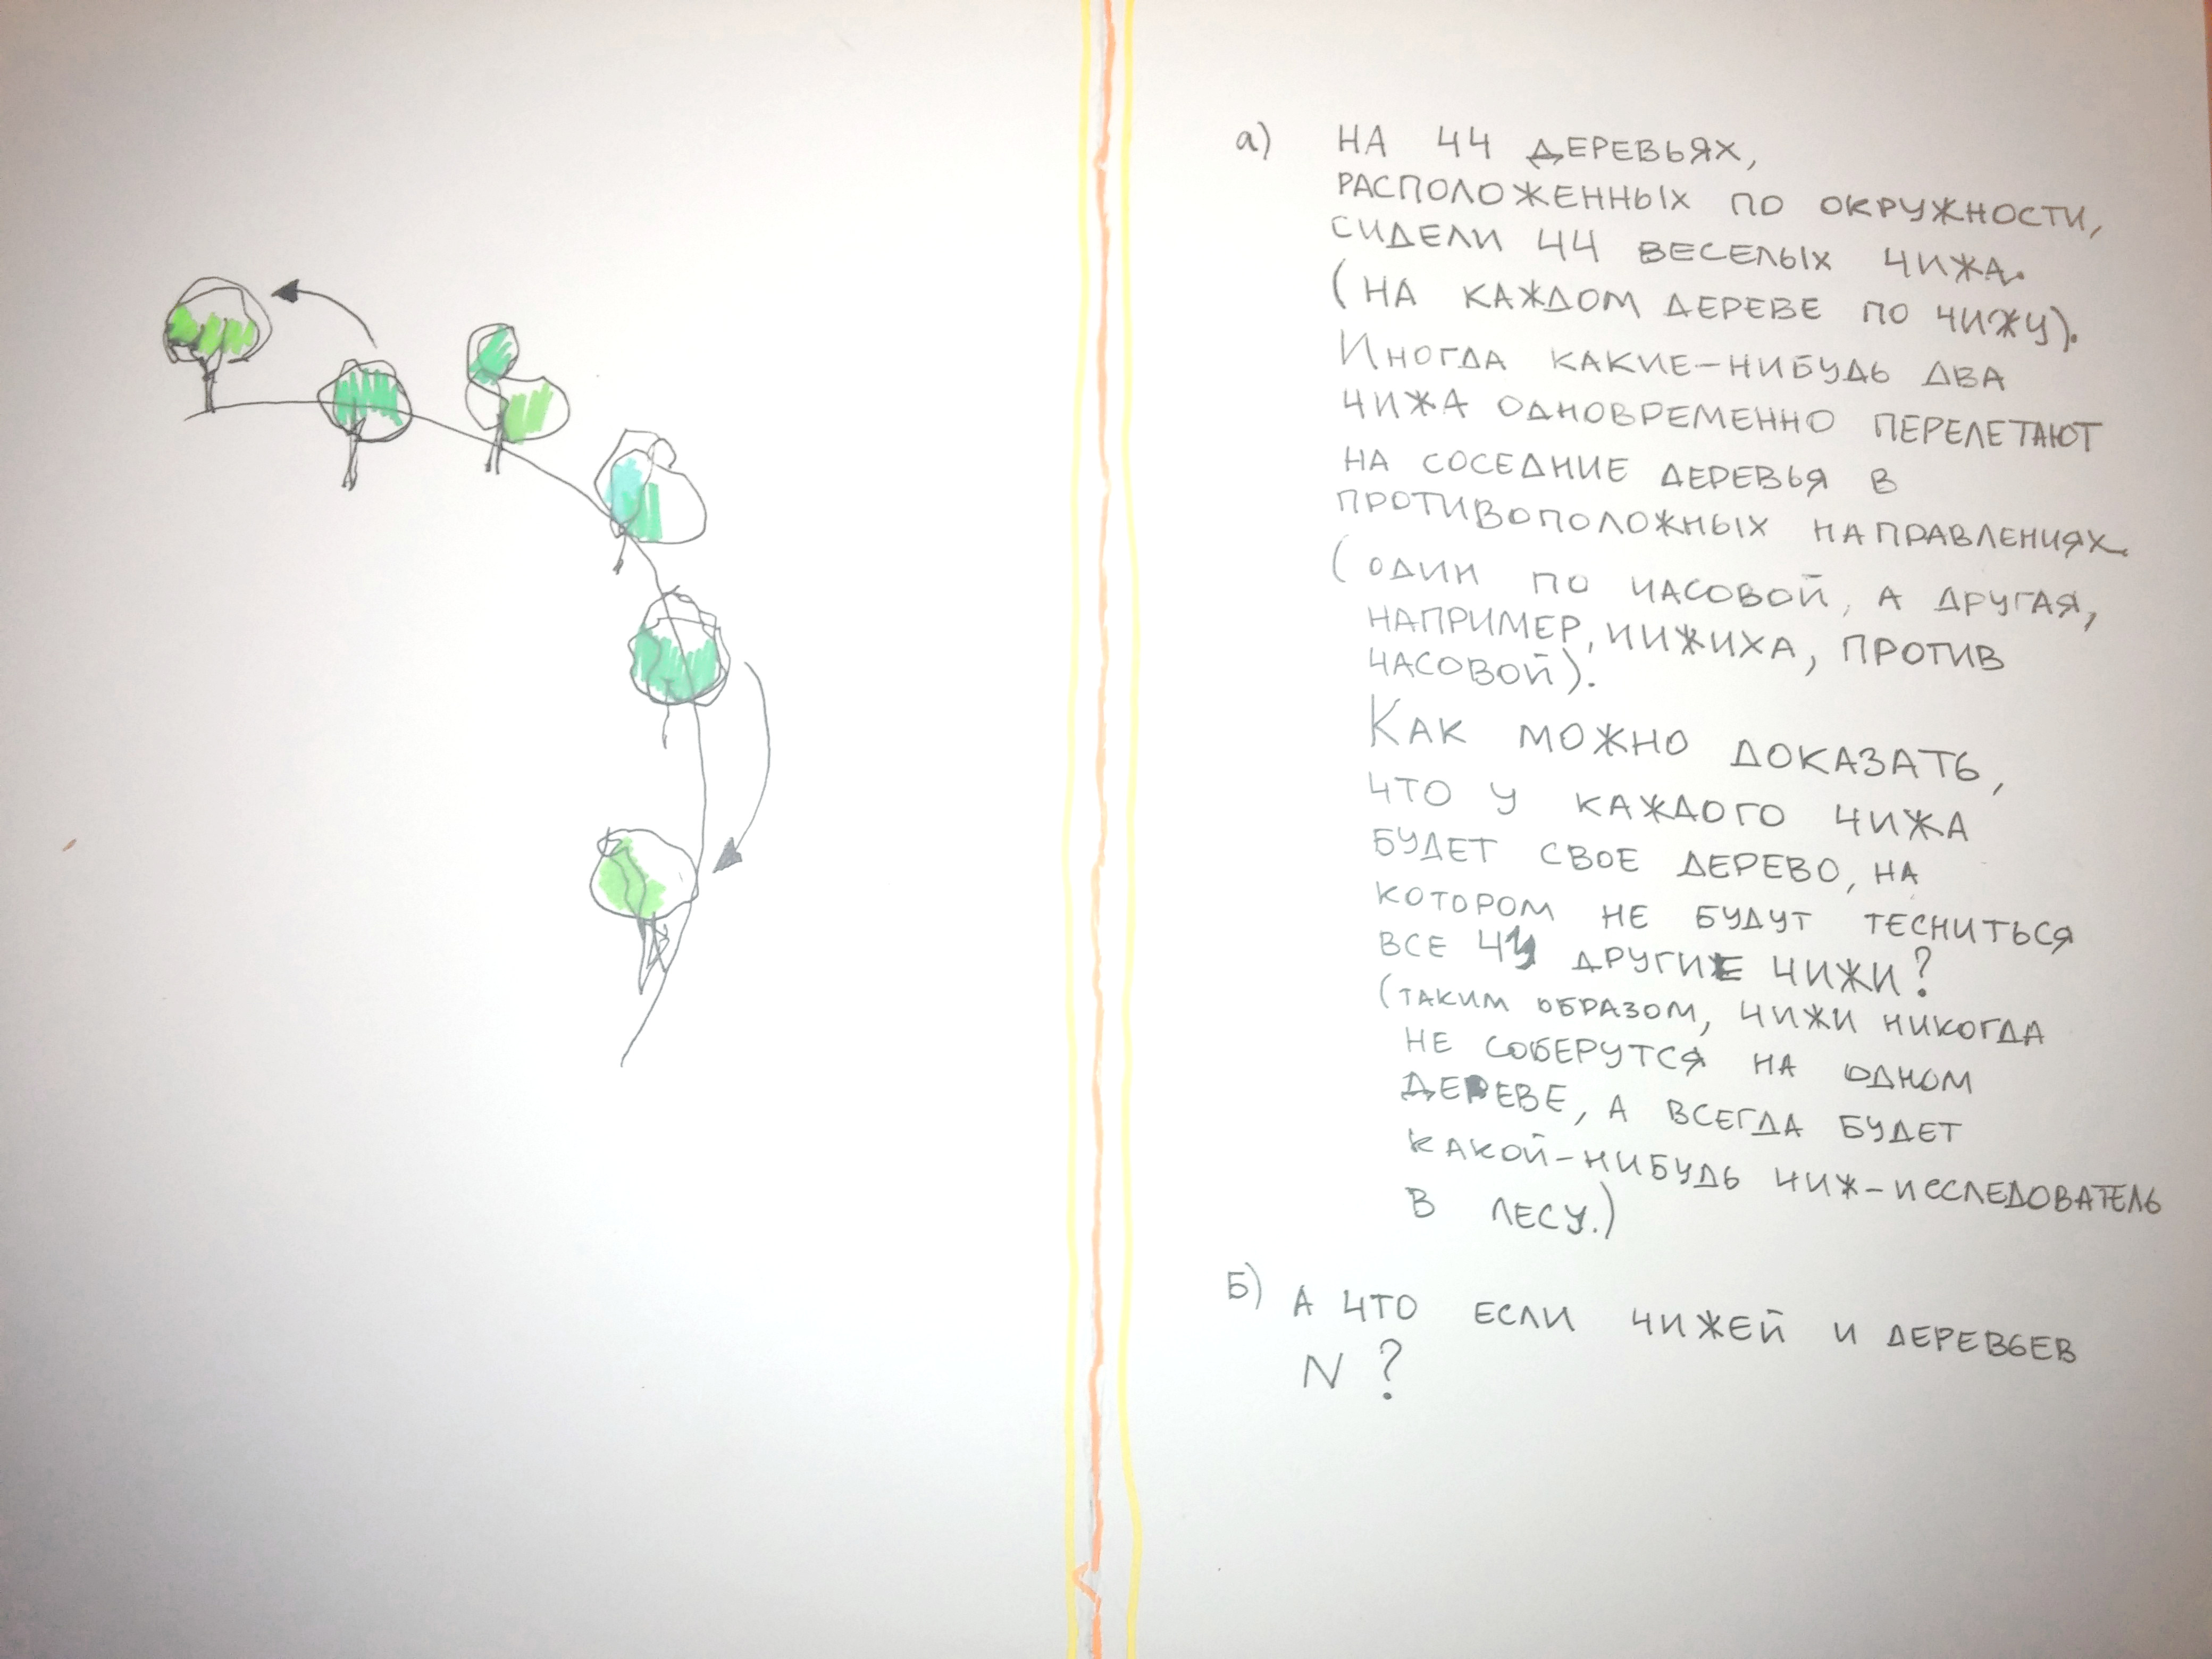 а) НА 44 ДЕРЕВЬЯХ,
РАСПОЛОЖЕННЫХ ПО ОКРУЖНОСТИ,
СИДЕЛИ 44 ВЕСЕЛЫХ ЧИЖА.
(НА КАЖДОМ ДЕРЕВЕ ПО ЧИЖУ).
ИНОГДА КАКИЕ-НИБУДЬ ДВА
ЧИЖА ОДНОВРЕМЕННО ПЕРЕЛЕТАЮТ
НА СОСЕДНИЕ ДЕРЕВЬЯ В
ПРОТИВОПОЛОЖНЫХ НАПРАВЛЕНИЯХ
(ОДИН ПО ЧАСОВОЙ, А ДРУГАЯ,
НАПРИМЕР, ЧИЖИХА, ПРОТИВ
ЧАСОВОЙ).
КАК МОЖНО ДОКАЗАТЬ,
ЧТО У КАЖДОГО ЧИЖА
БУДЕТ СВОЕ ДЕРЕВО, НА
КОТОРОМ НЕ БУДУТ ТЕСНИТЬСЯ
ВСЕ ДРУГИЕ ЧИЖИ?
(ТАКИМ ОБРАЗОМ, ЧИЖИ НИКОГДА
НЕ СОБЕРУТСЯ НА ОДНОМ
ДЕРЕВЕ, А ВСЕГДА БУДЕТ
КАКОЙ-НИБУДЬ ЧИЖ-ИССЛЕДОВАТЕЛЬ
В ЛЕСУ.)
Б) А ЧТО ЕСЛИ ЧИЖЕЙ И ДЕРЕВЬЕВ
N ?